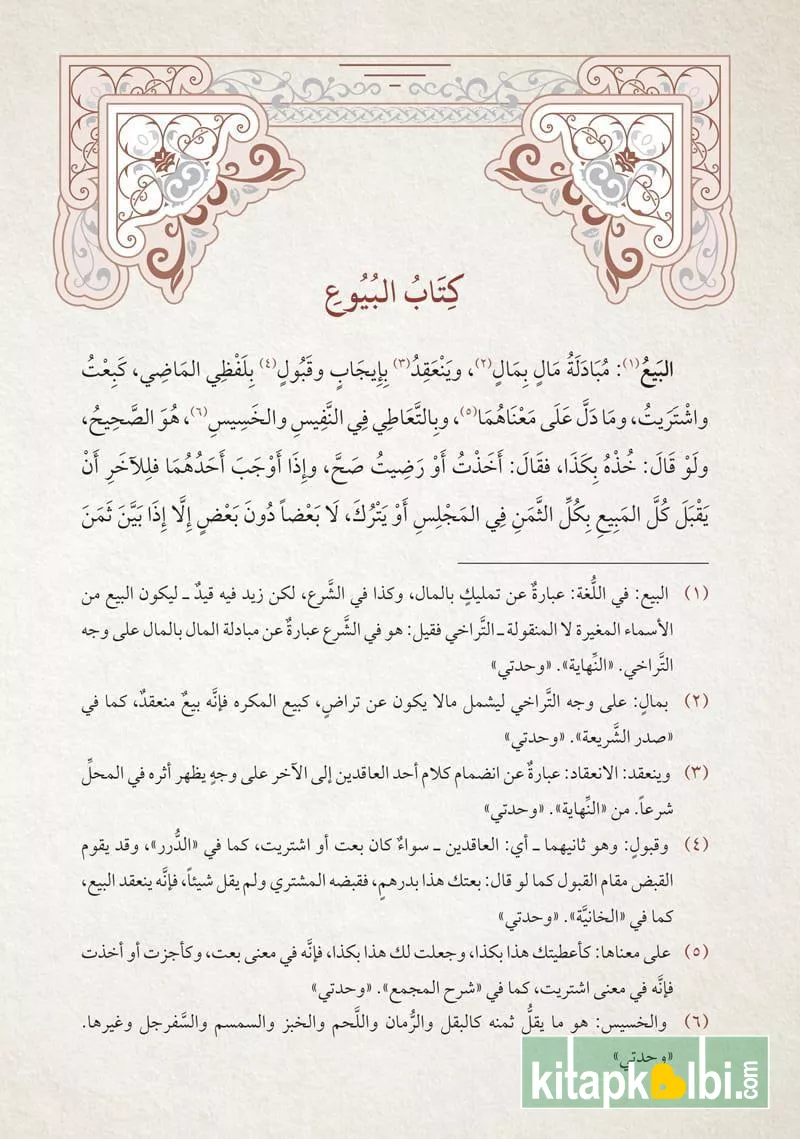 كِتَابُ البُيُوعِ
البَيْعُ(١): مُبَادَلَةُ مَالٍ بِمَالٍ(٢)، ويَنْعَقِدُ(٣) بِإِيجَابٍ وقَبُولٍ(٤) بِلَفْظِي المَاضِي، كَبِعْتُ
واشْتَرَيتُ، ومَا دَلَّ عَلَى مَعْنَاهُمَا(٥)، وبِالتَّعَاطِي فِي النَّفِيسِ والخَسِيسِ(٦)، هُوَ الصَّحِيحُ،
ولَوْ قَالَ: خُذْهُ بِكَذَا، فقَالَ: أَخَذْتُ أَوْ رَضِيتُ صَحَّ، وإِذَا أَوْجَبَ أَحَدُهُمَا فلِلآخَرِ أَنْ
يَقْبَلَ كُلَّ المَبِيعِ بِكُلِّ الثَّمَنِ فِي المَجْلِسِ أَوْ يَتْرُكَ، لَا بَعْضاً دُونَ بَعْضٍ إِلَّا إِذَا بَيَّنَ ثَمَنَ
(١) البيع: في اللُّغة: عبارةٌ عن تمليكٍ بالمال، وكذا في الشَّرع، لكن زيد فيه قيدٌ ـ ليكون البيع من
الأسماء المغيرة لا المنقولة ـ التَّراخي فقيل: هو في الشَّرع عبارةٌ عن مبادلة المال بالمال على وجه
التَّراخي. «النِّهاية». «وحدتي»
(٢) بمالٍ: على وجه التَّراخي ليشمل مالا يكون عن تراضٍ, كبيع المكره فإنَّه بيعٌ منعقدٌ، كما في
«صدر الشَّريعة». «وحدتي»
(٣) وينعقد: الانعقاد: عبارةٌ عن انضمام كلام أحد العاقدين إلى الآخر على وجهٍ يظهر أثره في المحلِّ
شرعاً. من «النِّهاية». «وحدتي»
(٤) وقبولٍ: وهو ثانيهما ـ أي: العاقدين ـ سواءٌ كان بعت أو اشتريت، كما في «الدُّرر»، وقد يقوم
القبض مقام القبول كما لو قال: بعتك هذا بدرهمٍ, فقبضه المشتري ولم يقل شيئاً، فإنَّه ينعقد البيع،
كما في «الخانيَّة». «وحدتي»
(٥) على معناها: كأعطيتك هذا بكذا، وجعلت لك هذا بكذا، فإنَّه في معنى بعت، وكأجزت أو أخذت
فإنَّه في معنى اشتريت، كما في «شرح المجمع». «وحدتي»
(٦) والخسيس: هو ما يقلُّ ثمنه كالبقل والرُّمان واللَّحم والخبز والسمسم والسَّفرجل وغيرها.
«وحدتي»
kitapkalbi.com